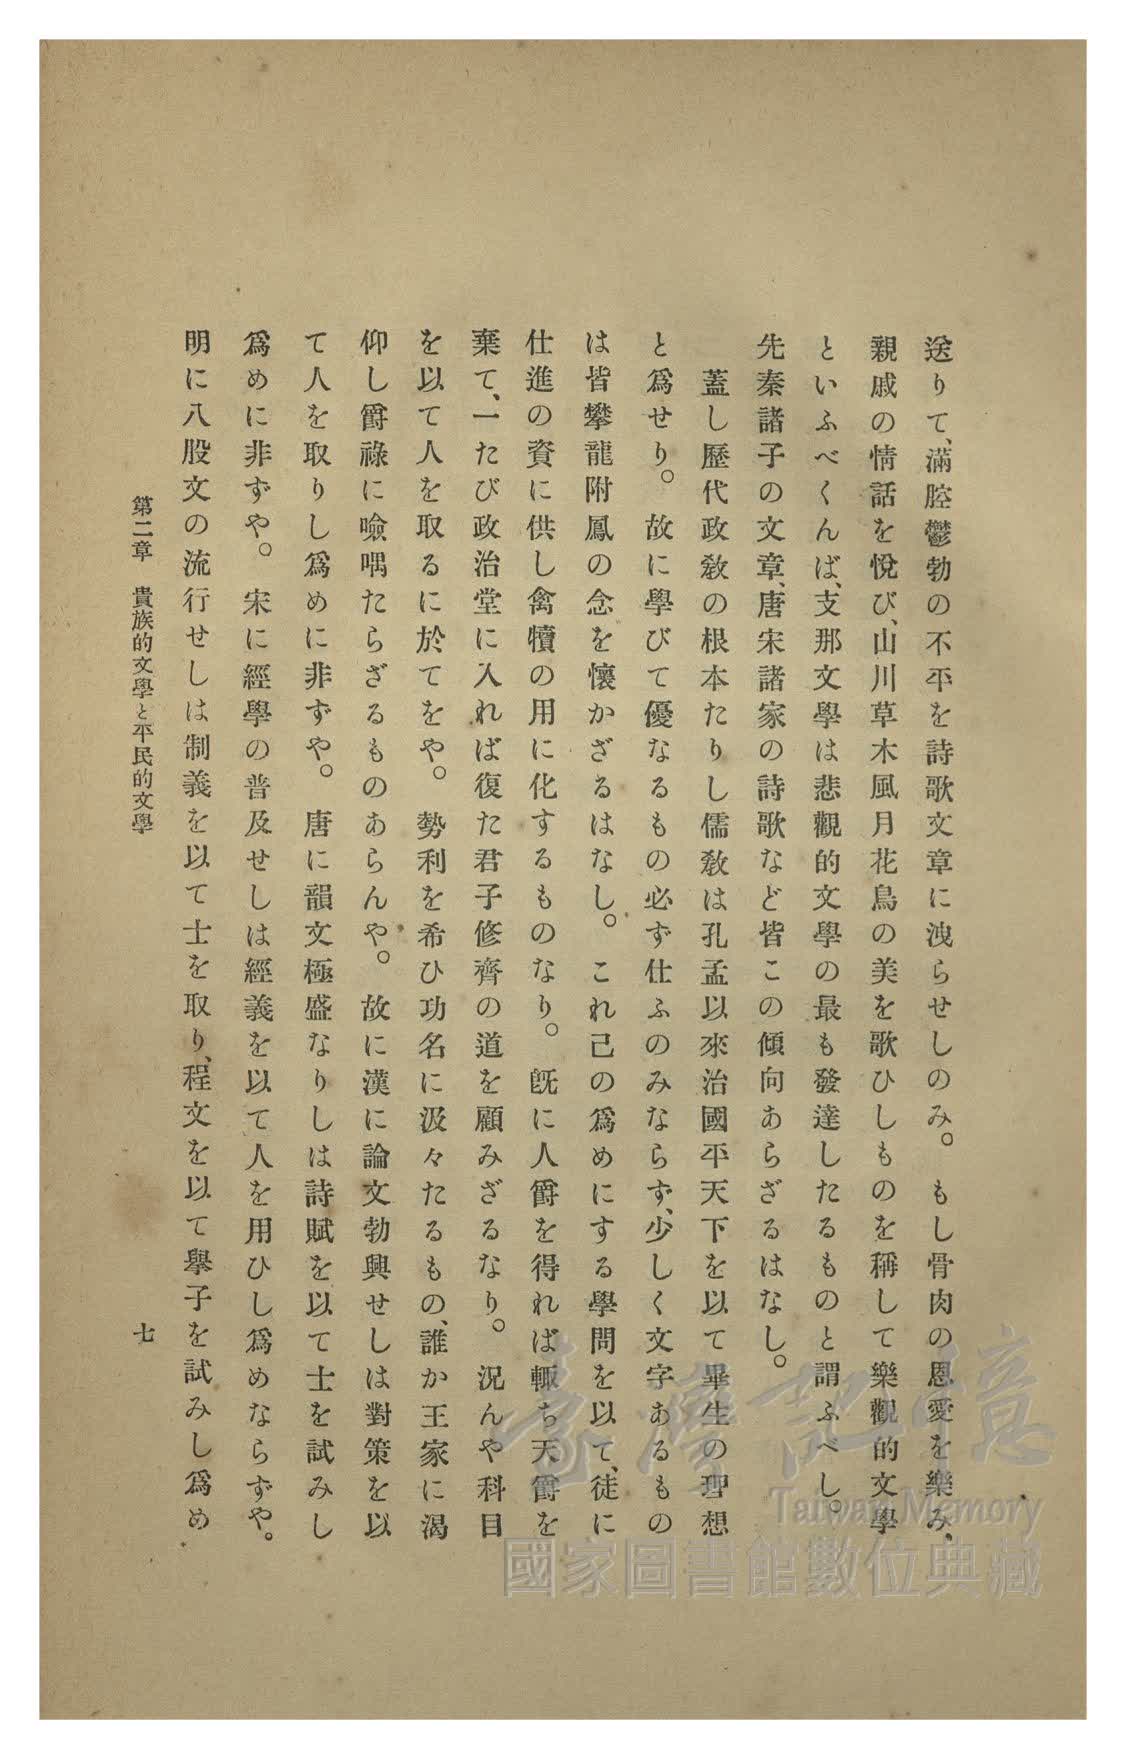 送りて、滿腔鬱勃の不平を詩歌文章に洩らせしのみ。もし骨肉の恩愛を樂み、
親戚の情話を悅び、山川草木風月花鳥の美を歌ひしものを稱して樂觀的文學
といふべくんば、支那文學は悲觀的文學の最も發達したるものと謂ふべし。
先秦諸子の文章、唐宋諸家の詩歌など皆この傾向あらざるはなし。
蓋し歷代政敎の根本たりし儒敎は孔孟以來治國平天下を以て畢生の理想
と爲せり。故に學びて優なるもの必ず仕ふのみならず、少しく文字あるもの
は皆攀龍附鳳の念を懷かざるはなし。これ己の爲めにする學問を以て、徒に
仕進の資に供し禽犢の用に化するものなり。旣に人爵を得れば輙ち天爵を
棄て、一たび政治堂に入れば復た君子修齊の道を顧みざるなり。況んや科目
を以て人を取るに於てをや。勢利を希ひ功名に汲々たるもの、誰か王家に渴
仰し爵祿に噞喁たらざるものあらんや。故に漢に論文勃興せしは對策を以
て人を取りし爲めに非ずや。唐に韻文極盛なりしは詩賦を以て士を試みし
爲めに非ずや。宋に經學の普及せしは經義を以て人を用ひし爲めならずや。
明に八股文の流行せしは制義を以て士を取り、程文を以て擧子を試みし爲め
第二章 貴族的文學と平民的文學
七
臺灣記憶
Taiwan Memory
國家圖書館數位典藏